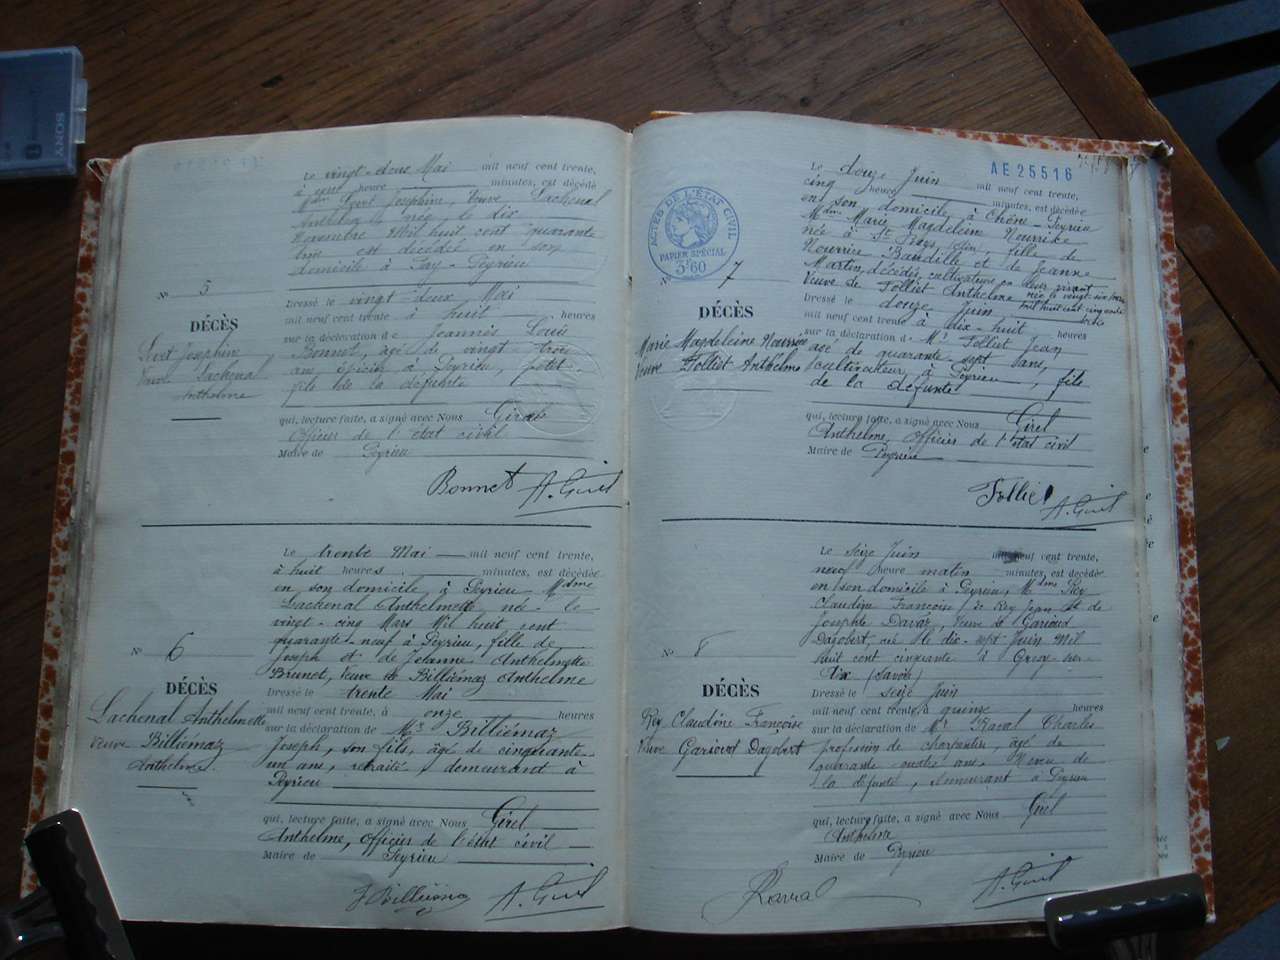 SONY
Le vingt-deux Mai mil neuf cent trente,
à heure minutes, est décédé
Mdme Joséphine, Veuve Lachenal
Anthelme née, le dix
Novembre Mil huit cent quarante
est décédé en son
domicile à Peyrieu
No 5
DÉCÈS
Joséphine
Veuve Lachenal
Anthelme
Dressé le vingt-deux Mai
mil neuf cent trente à huit heures
sur la déclaration de Joannès Louis
Bonnet, âgé de vingt trois
ans épicier à Peyrieu, petit-
fils de la défunte
qui, lecture faite, a signé avec Nous Girel
Officier de l'état civil
Maire de Peyrieu
Bonnet A. Girel
Le trente Mai mil neuf cent trente,
à huit heures minutes, est décédée
en son domicile à Peyrieu Mdme
Lachenal Anthelmette née le
vingt-cinq Mars Mil huit cent
quarante-neuf à Peyrieu, fille de
Joseph et de Jeanne Anthelmette
Brunet, veuve de Billiémaz Anthelme
No 6
DÉCÈS
Lachenal Anthelmette
veuve Billiémaz
Anthelme
Dressé le trente Mai
mil neuf cent trente, à onze heures
sur la déclaration de Mr Billiémaz
Joseph, son fils, âgé de cinquante
un ans, retraité, demeurant à
Peyrieu
qui, lecture faite, a signé avec Nous Girel
Anthelme, Officier de l'état civil
Maire de Peyrieu
J Billiémaz A. Girel
AE 25516
ACTES DE L'ÉTAT CIVIL
PAPIER SPÉCIAL
3F60
Le douze Juin mil neuf cent trente,
cinq heure minutes, est décédée
en son domicile, à Chêne-Peyrieu
Mdme Marie Magdeleine Nourrice
née à St (Isère), fille de
Nourrice Baudille et de Jeanne
Martin, décédés, cultivateurs en leur vivant
Veuve de Folliet Anthelme née le vingt-six
mil huit cent cinquante
No 7
DÉCÈS
Marie Magdeleine Nourrice
Veuve Folliet Anthelme
Dressé le douze Juin
mil neuf cent trente à dix-huit heures
sur la déclaration d Mr Folliet Jean
âgé de quarante-sept ans,
cultivateur, à Peyrieu, fils
de la défunte
qui, lecture faite, a signé avec Nous Girel
Anthelme, Officier de l'état civil
Maire de Peyrieu
Folliet A. Girel
Le seize Juin mil neuf cent trente,
neuf heure matin minutes, est décédée
en son domicile à Peyrieu, Mdme Rey
Claudine Françoise, de Rey Jean et de
Josephte Davat, Veuve de Gariout
Dagobert née le dix-sept Juin Mil
huit cent cinquante à Grésy-sur-
Aix (Savoie)
No 8
DÉCÈS
Rey Claudine Françoise
Veuve Gariout Dagobert
Dressé le seize Juin
mil neuf cent trente, à quinze heures
sur la déclaration de Mr Raval Charles
profession de charpentier, âgé de
quarante-quatre ans, Neveu de
la défunte, demeurant à Peyrieu
qui, lecture faite, a signé avec Nous Girel
Anthelme
Maire de Peyrieu
Raval A. Girel